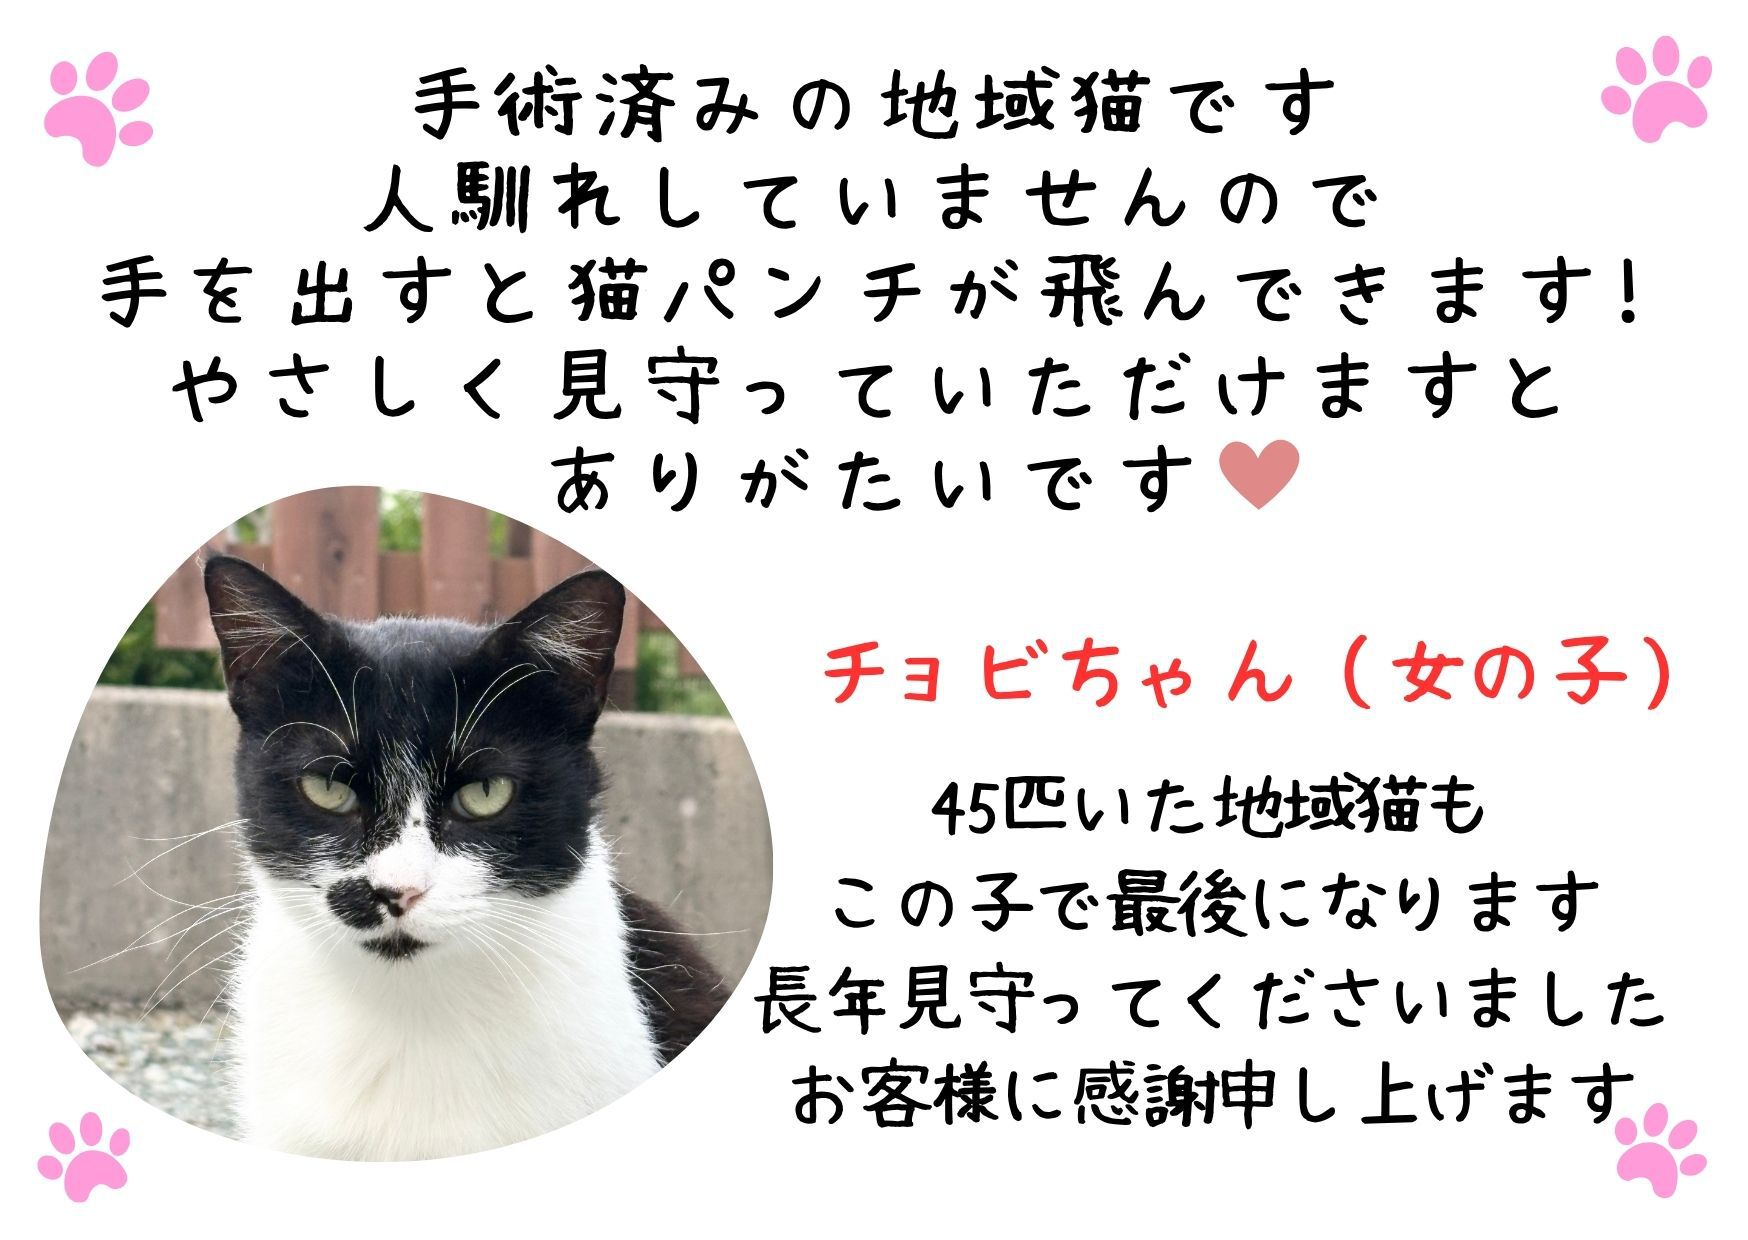 手術済みの地域猫です
人馴れしていませんので
手を出すと猫パンチが飛んできます!
やさしく見守っていただけますと
ありがたいです
チョビちゃん（女の子）
45匹いた地域猫も
この子で最後になります
長年見守ってくださいました
お客様に感謝申し上げます